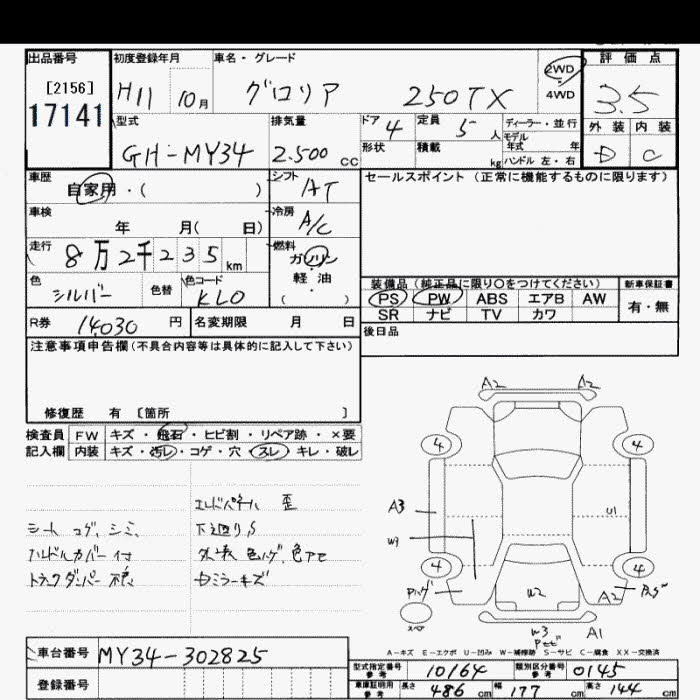 出品番号 初度登録年月 車名・グレード 評価点
[2156] H11 10月 グロリア 250TX 2WD 4WD 3.5
17141
型式 排気量 ドア 4 定員 5人 ディーラー・並行 外装 内装
GH-MY34 2.500cc 形状 積載 kg モデル年式 年 ハンドル 左・右 D C
車歴 自家用・( ) シフト AT セールスポイント(正常に機能するものに限ります)
車検 年 月( 日) 冷房 A/C
走行 8万2千235km 燃料 ガソリン 軽油 ( ・ )
色 シルバー 色替 色コード KL0 装備品(純正品に限り○をつけてください) 新車保証書
PS PW ABS エアB AW 有・無
SR ナビ TV カワ
R券 14030円 名変期限 月 日 後日品
注意事項申告欄(不具合内容等は具体的に記入して下さい)
修復歴 有 [箇所 ]
検査員 FW キズ・飛石・ヒビ割・リペア跡・×要
記入欄 内装 キズ・汚レ・コゲ・穴・スレ・キレ・破レ
エンドパネル 歪
シート コゲ、シミ、 下廻りS
ハンドルカバー付 外装 色ハゲ、色アセ
トランクダンパー不良 Rミラーキズ
A2 A2
4 4
A3 U1
W3
4 4
W2 A2
スペア W3 A1
A-キズ E-エクボ U-凹み W-補修跡 S-サビ C-腐食 XX-交換済
車台番号 MY34-302825
登録番号
型式指定番号 参考 10164 類別区分番号 参考 0145
車庫証明用 参考 長さ 486cm 幅 177cm 高さ 144cm